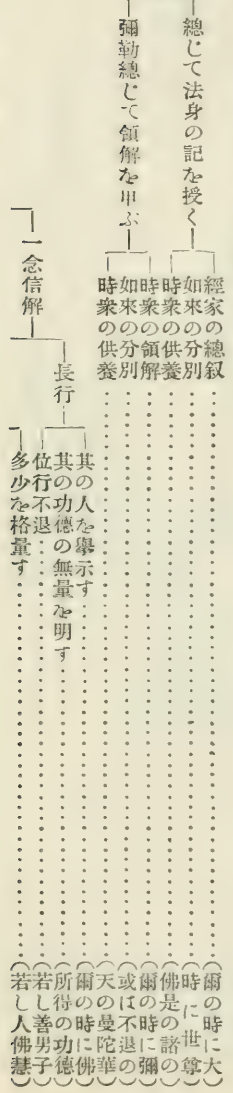 總じて法身の記を授く
經家の總叙……（爾の時に大）
如來の分別……（時に世尊）
時衆の供養……（佛是の諸の）
彌勒總じて領解を申ぶ
時衆の領解……（爾の時に彌）
如來の分別……（或は不退の）
時衆の供養……（天の曼陀華）
一念信解
長行
其の人を擧示す……（爾の時に佛）
其の功德の無量を明す……（所得の功德）
位行不退……（若し善男子）
多少を格量す……（若し人佛慧）